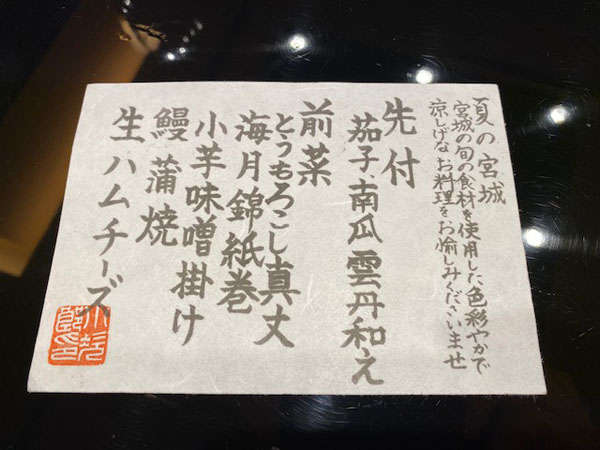 夏の宮城
宮城の旬の食材を使用した色彩やかで
涼しげなお料理をお愉しみくださいませ
先付
茄子、南瓜雲丹和え
前菜
とうもろこし真丈
海月錦紙巻
小芋味噌掛け
鰻蒲焼
生ハムチーズ